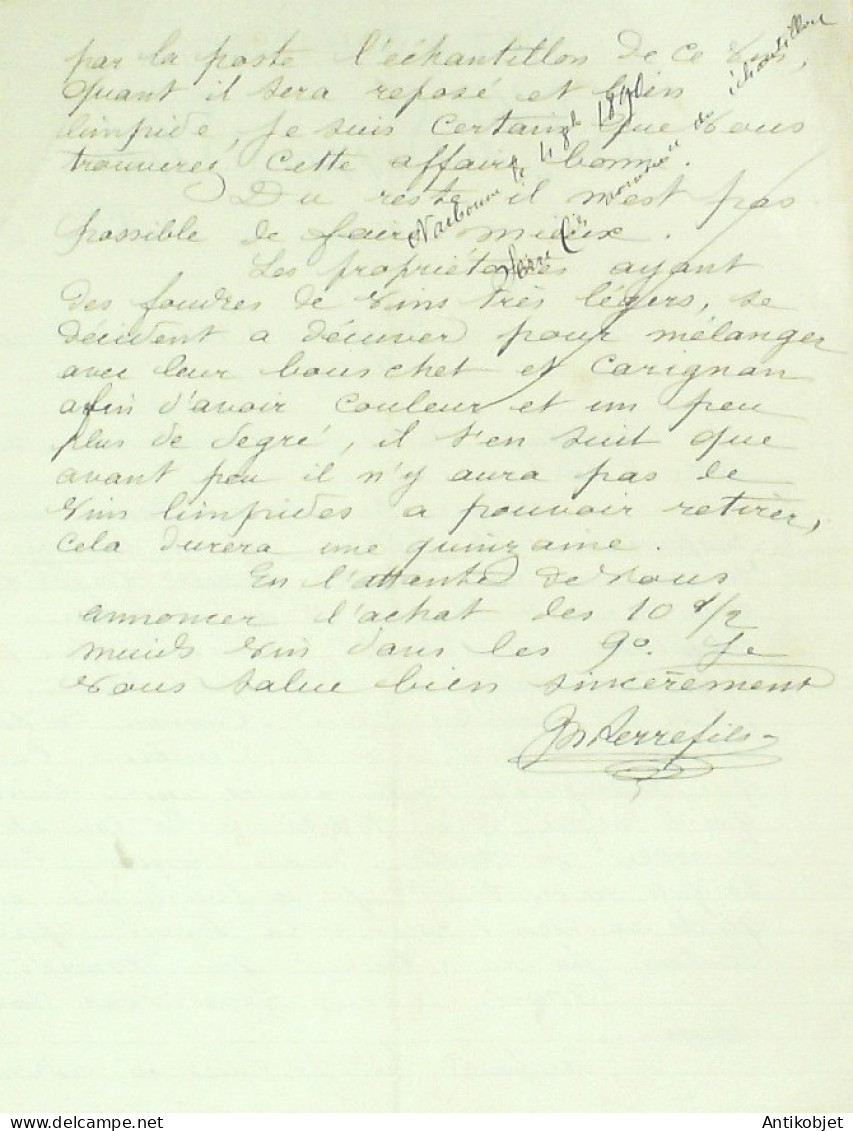 par la poste l'échantillon de ce vin,
quant il sera reposé et bien
limpide, Je suis certain que vous
trouverez cette affaire bonne.
Du reste il m'est pas
possible de faire mieux.
Les propriétaires ayant
des foudres de vins très légers, se
décident a décuver pour mélanger
avec leur bouschet et Carignan
afin d'avoir couleur et un peu
plus de degré, il s'en suit que
avant peu il n'y aura pas de
vins limpides a pouvoir retirer,
cela durera une quinzaine.
En l'attente de vous
annoncer l'achat des 10 d/2
muids vin dans les 9°. Je
vous salue bien sincèrement
Serre fils
Narbonne le 4 9bre
échantillon
Antikobjet